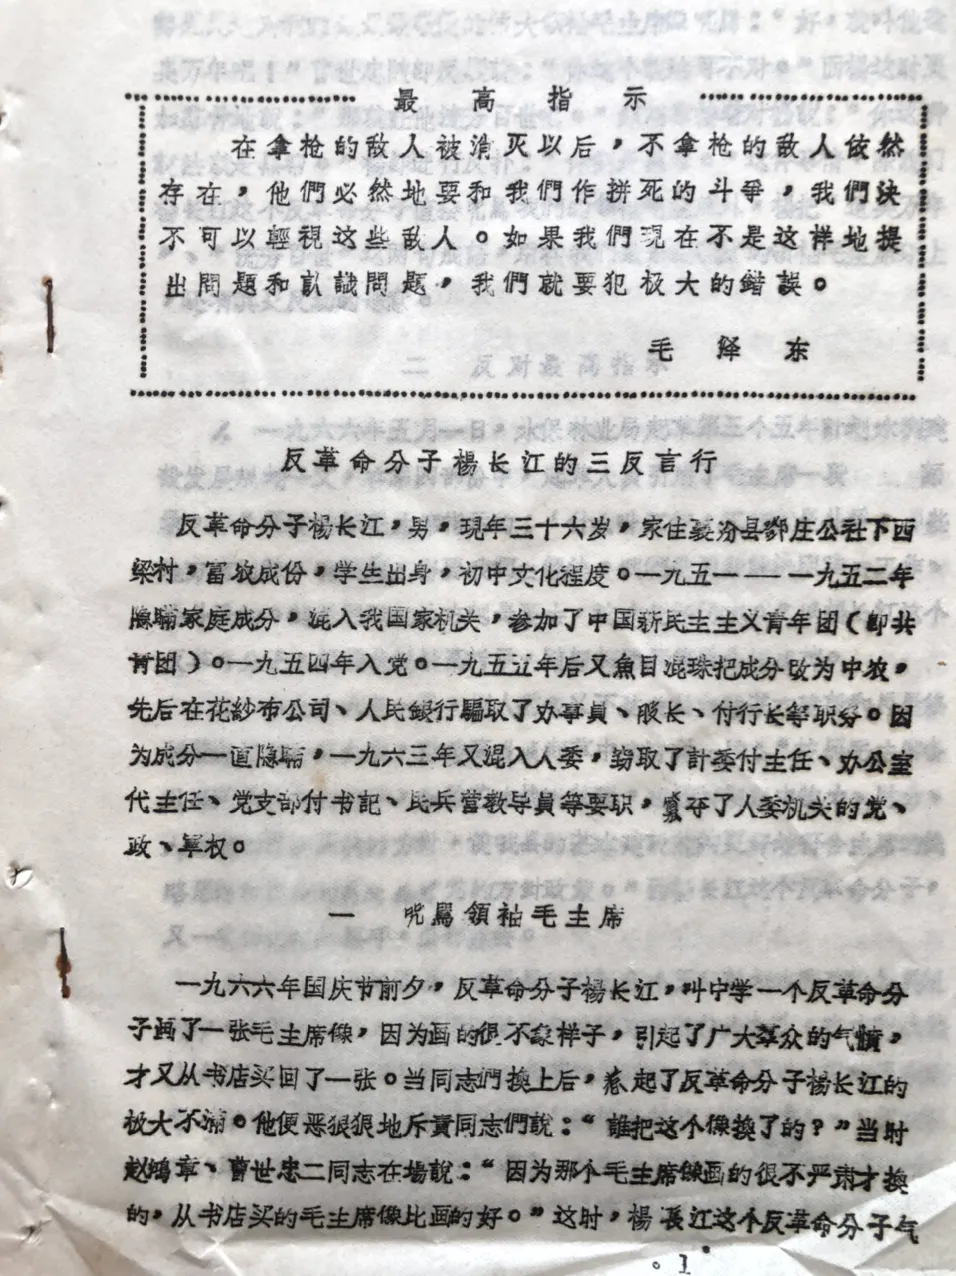 最高指示
在拿枪的敌人被消灭以后，不拿枪的敌人依然
存在，他們必然地要和我們作拼死的斗爭，我們决
不可以輕視这些敌人。如果我們现在不是这样地提
出問題和认識問題，我們就要犯极大的錯誤。
毛泽东
反革命分子楊长江的三反言行
反革命分子楊长江，男，現年三十六岁，家住襄汾县邓庄公社下西
梁村，富农成份，学生出身，初中文化程度。一九五一——一九五二年
隐瞒家庭成分，混入我国家机关，参加了中国新民主主义青年团（即共
青团）。一九五四年入党。一九五五年后又魚目混珠把成分改为中农，
先后在花紗布公司、人民銀行騙取了办事員、股长、付行长等职务。因
为成分一直隐瞒，一九六三年又混入人委，窃取了計委付主任、办公室
代主任、党支部付书記、民兵营教导員等要职，篡夺了人委机关的党、
政、軍权。
一 咒駡領袖毛主席
一九六六年国庆节前夕，反革命分子楊长江，叫宁学一个反革命分
子画了一张毛主席像，因为画的很不象样子，引起了广大羣众的气憤，
才又从书店买回了一张。当同志們換上后，惹起了反革命分子楊长江的
极大不滿。他便恶狠狠地斥責同志們說：“誰把这个像換了的？”当时
赵鴻章、曹世忠二同志在場說：“因为那个毛主席像画的很不严肃才換
的，从书店买的毛主席像比画的好。”这时，楊長江这个反革命分子气
1